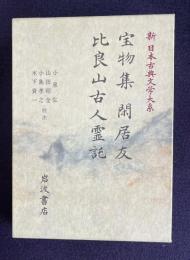 新日本古典文学大系
宝物集 閑居友
比良山古人霊託
小泉弘
山田昭全
小島孝之 校注
木下資一
岩波書店